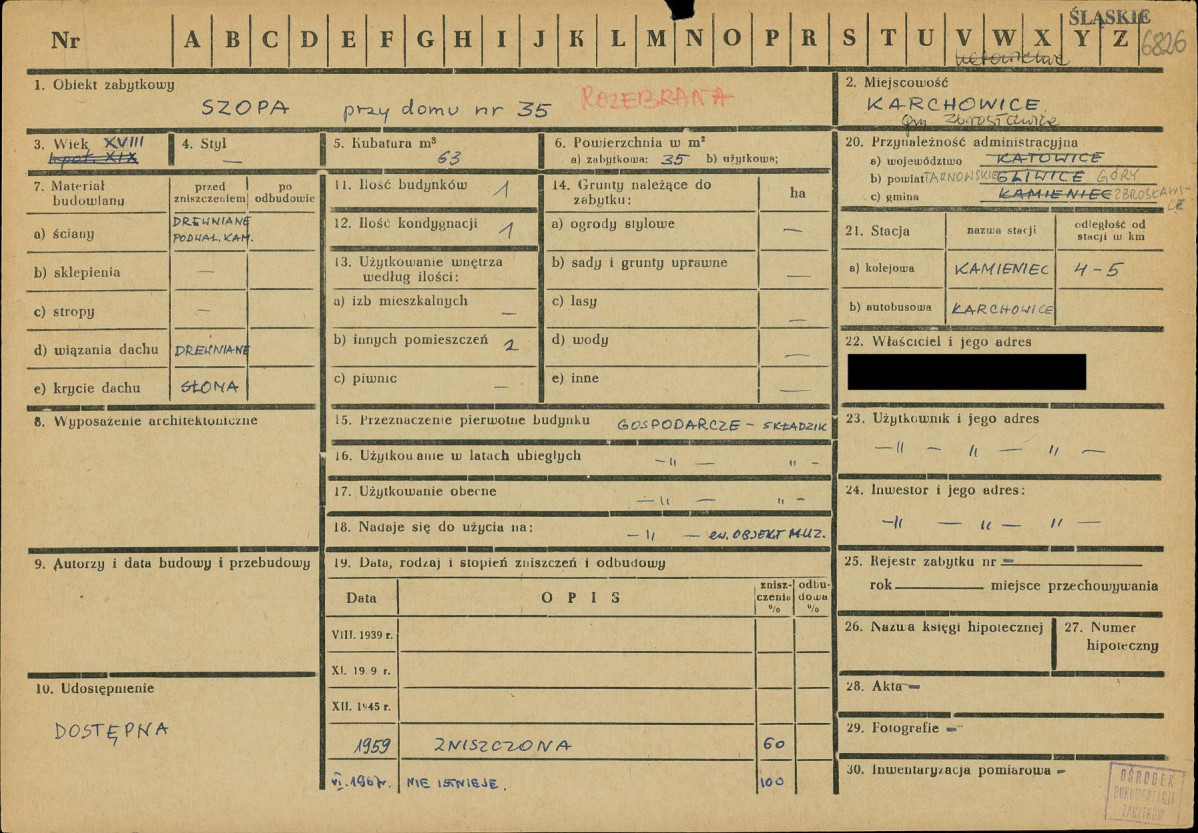 ŚLĄSKIE
6826
Nr A B C D E F G H I J K L M N O P R S T U V W X Y Z
1. Obiekt zabytkowy
SZOPA przy domu nr 35 ROZEBRANA
2. Miejscowość
KARCHOWICE
gm Zbrosławice
3. Wiek XVIII
4. Styl —
5. Kubatura m³
63
6. Powierzchnia w m²
a) zabytkowa: 35 b) użytkowa;
7. Materiał budowlany
przed zniszczeniem
po odbudowie
a) ściany DREWNIANE
PODWAL. KAM.
b) sklepienia —
c) stropy —
d) wiązania dachu DREWNIANE
e) krycie dachu SŁOMA
8. Wyposażenie architektoniczne
9. Autorzy i data budowy i przebudowy
10. Udostępnienie
DOSTĘPNA
11. Ilość budynków 1
12. Ilość kondygnacji 1
13. Użytkowanie wnętrza
według ilości:
a) izb mieszkalnych —
b) innych pomieszczeń 2
c) piwnic —
14. Grunty należące do
zabytku:
ha
a) ogrody stylowe —
b) sady i grunty uprawne —
c) lasy —
d) wody —
e) inne —
15. Przeznaczenie pierwotne budynku GOSPODARCZE – SKŁADZIK
16. Użytkowanie w latach ubiegłych –〃— 〃–
17. Użytkowanie obecne —〃— 〃–
18. Nadaje się do użycia na: –〃— ew. OBJEKT MUZ.
19. Data, rodzaj i stopień zniszczeń i odbudowy
Data OPIS zniszczenia % odbudowa %
VIII. 1939 r.
XI. 19 9 r.
XII. 1945 r.
1959 ZNISZCZONA 60
VI. 1967r. NIE ISTNIEJE. 100
20. Przynależność administracyjna
a) województwo KATOWICE
b) powiat TARNOWSKIE GLIWICE GÓRY
c) gmina KAMIENIEC ZBROSŁAWI-
CE
21. Stacja
nazwa stacji
odległość od
stacji w km
a) kolejowa KAMIENIEC 4-5
b) autobusowa KARCHOWICE
22. Właściciel i jego adres
23. Użytkownik i jego adres
–〃— 〃— 〃—
24. Inwestor i jego adres:
–〃— 〃— 〃—
25. Rejestr zabytku nr —
rok miejsce przechowywania
26. Nazwa księgi hipotecznej
27. Numer
hipoteczny
28. Akta –
29. Fotografie –
30. Inwentaryzacja pomiarowa –
OŚRODEK
DOKUMENTACJI
ZABYTKÓW